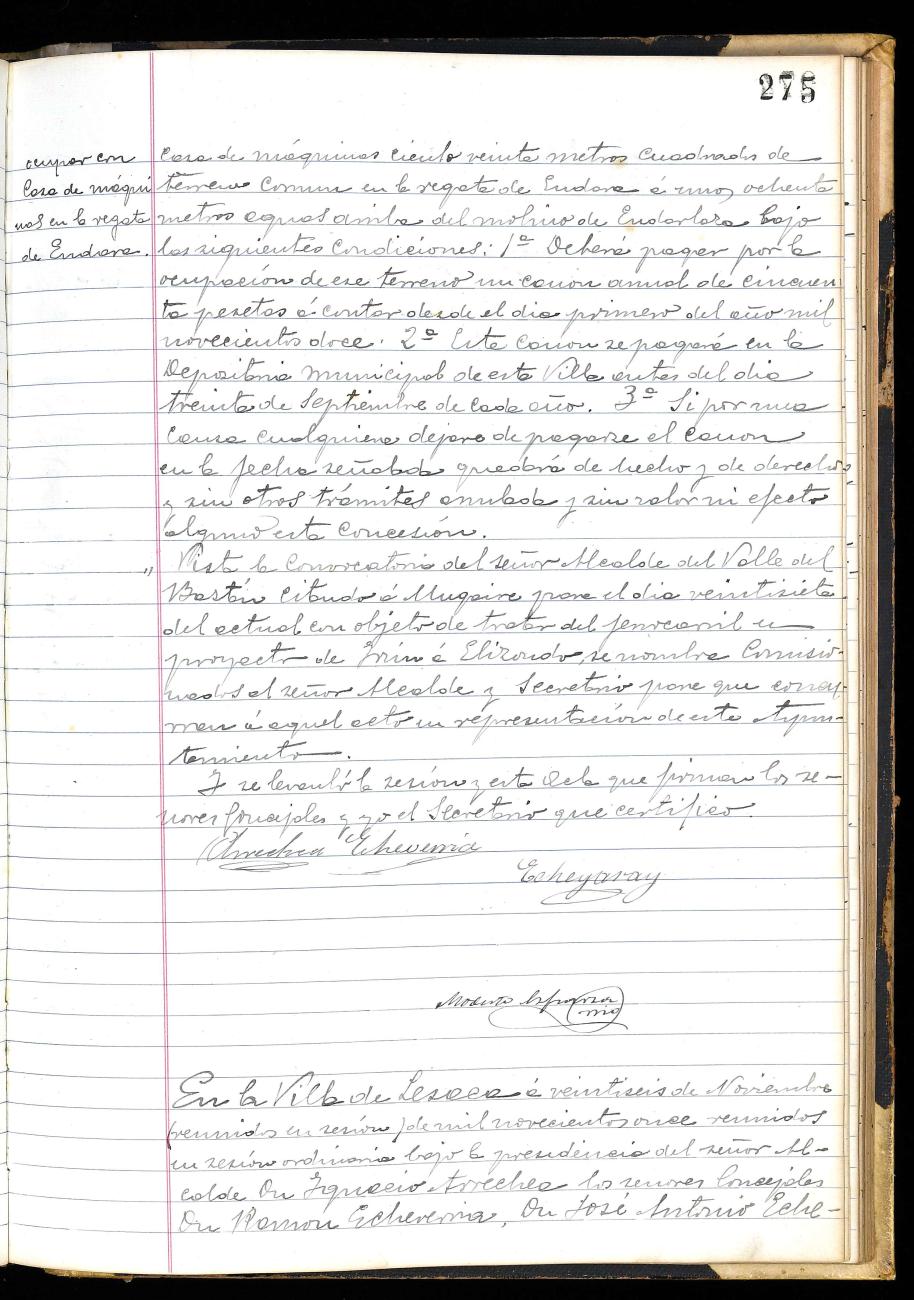 275
ocupar con
Casa de máqui
nas en la regata
de Endara.
Casa de máquinas ciento veinte metros cuadrados de
terreno comun en la regata de Endara á unos ochenta
metros aguas arriba del molino de Endarlaza bajo
las siguientes condiciones: 1ª Deberá pagar por la
ocupación de ese terreno un canon anual de cincuen
ta pesetas á contar desde el dia primero del año mil
novecientos doce. 2ª Este canon se pagará en la
Depositaria Municipal de esta Villa antes del dia
treinta de Septiembre de cada año. 3ª Si por una
causa cualquiera dejara de pagarse el canon
en la fecha señalada quedará de hecho y de derecho
y sin otros trámites anulada y sin valor ni efecto
alguno esta concesión.
" Vista la Convocatoria del señor Alcalde del Valle del
Bastán citando á Mugaire para el dia veintisiete
del actual con objeto de tratar del ferrocarril en
proyecto de Irún á Elizondo, se nombra Comisio-
nados al señor Alcalde y Secretario para que concu-
rran á aquel acto en representación de este Ayun-
tamiento.
Y se levantó la sesión y esta acta que firman los se-
ñores Concejales y yo el Secretario que certifico.
Arrechea Echeverria
Echegaray
Modesto Esparza
En la Villa de Lesaca á veintiseis de Noviembre
(reunidos en sesión) de mil novecientos once reunidos
en sesión ordinaria bajo la presidencia del señor Al-
calde Dn Ignacio Arrechea los señores Concejales
Dn Ramon Echeverria, Dn José Antonio Eche-